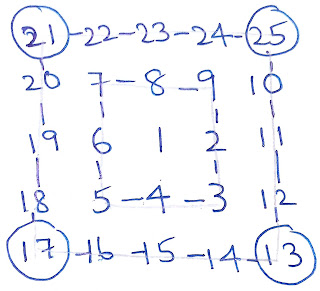 21-22-23-24-25
20 7-8-9 10
19 6 1 2 11
18 5-4-3 12
17-16-15-14-13